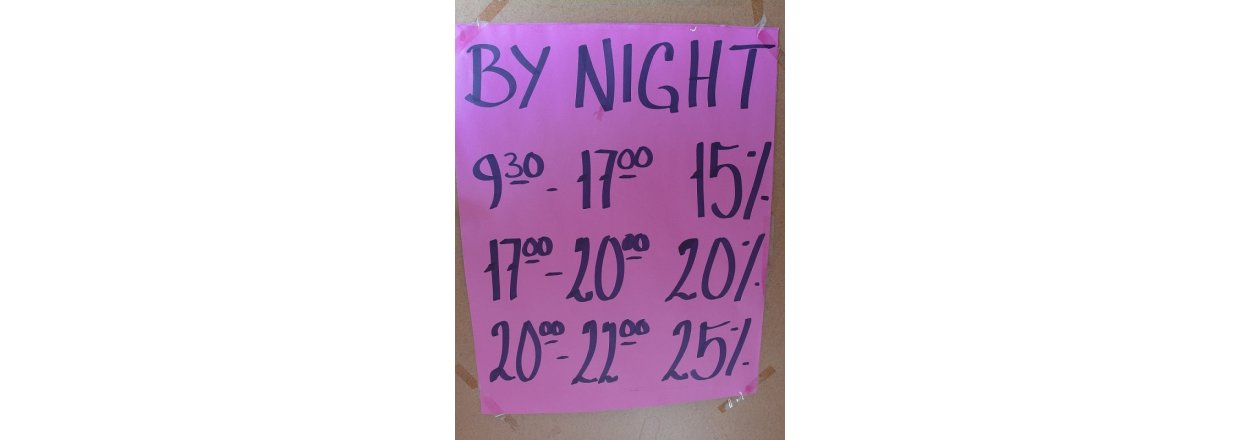 BY NIGHT
9³⁰ - 17⁰⁰ 15%
17⁰⁰ - 20⁰⁰ 20%
20⁰⁰ - 22⁰⁰ 25%